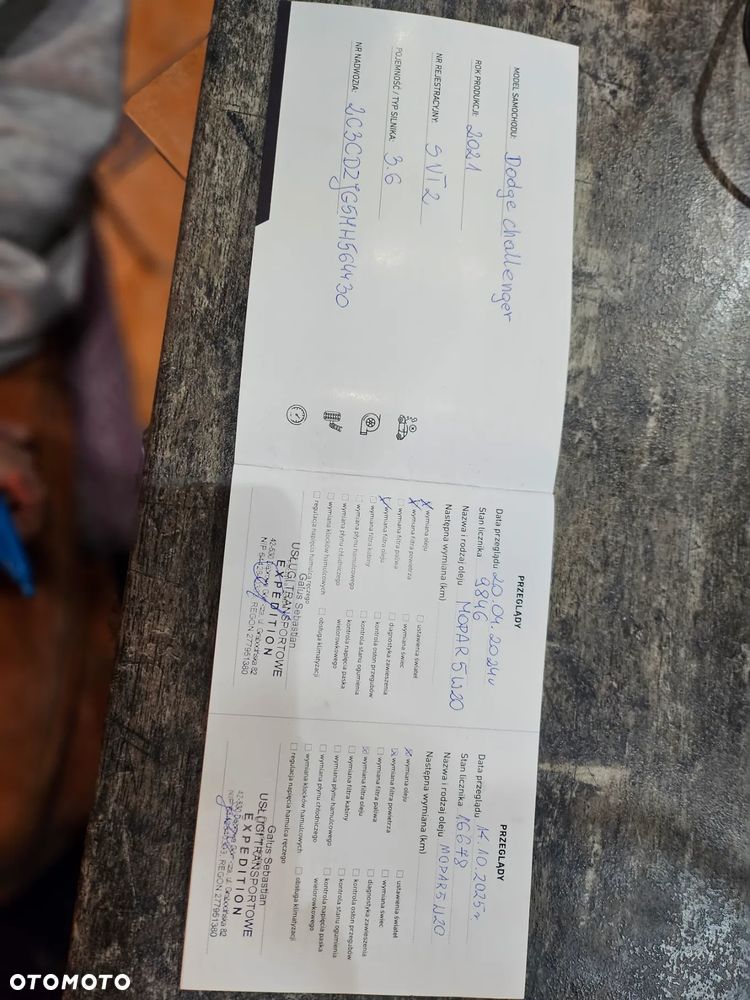 MODEL SAMOCHODU: Dodge challenger
ROK PRODUKCJI: 2021
NR REJESTRACYJNY: SV1 2
POJEMNOŚĆ / TYP SILNIKA: 3.6
NR NADWOZIA: 2C3CDZJG5MH564430
PRZEGLĄDY
Data przeglądu 20.04.2024r
Stan licznika 9846
Nazwa i rodzaj oleju MOPAR 5W20
Następna wymiana (km)
wymiana oleju
wymiana filtra powietrza
wymiana filtra paliwa
wymiana filtra oleju
wymiana filtra kabiny
wymiana płynu hamulcowego
wymiana płynu chłodniczego
wymiana klocków hamulcowych
regulacja napięcia hamulca ręcznego
ustawienia świateł
wymiana świec
diagnostyka zawieszenia
kontrola osłon przegubów
kontrola stanu ogumienia
kontrola napięcia paska
wielorowkowego
obsługa klimatyzacji
Gałus Sebastian
USŁUGI TRANSPORTOWE
EXPEDITION
REGON 277951380
PRZEGLĄDY
Data przeglądu 14.10.2025r
Stan licznika 16678
Nazwa i rodzaj oleju MOPAR 5W20
Następna wymiana (km)
wymiana oleju
wymiana filtra powietrza
wymiana filtra paliwa
wymiana filtra oleju
wymiana filtra kabiny
wymiana płynu hamulcowego
wymiana płynu chłodniczego
wymiana klocków hamulcowych
regulacja napięcia hamulca ręcznego
ustawienia świateł
wymiana świec
diagnostyka zawieszenia
kontrola osłon przegubów
kontrola stanu ogumienia
kontrola napięcia paska
wielorowkowego
obsługa klimatyzacji
Gałus Sebastian
USŁUGI TRANSPORTOWE
EXPEDITION
REGON 277951380
OTOMOTO